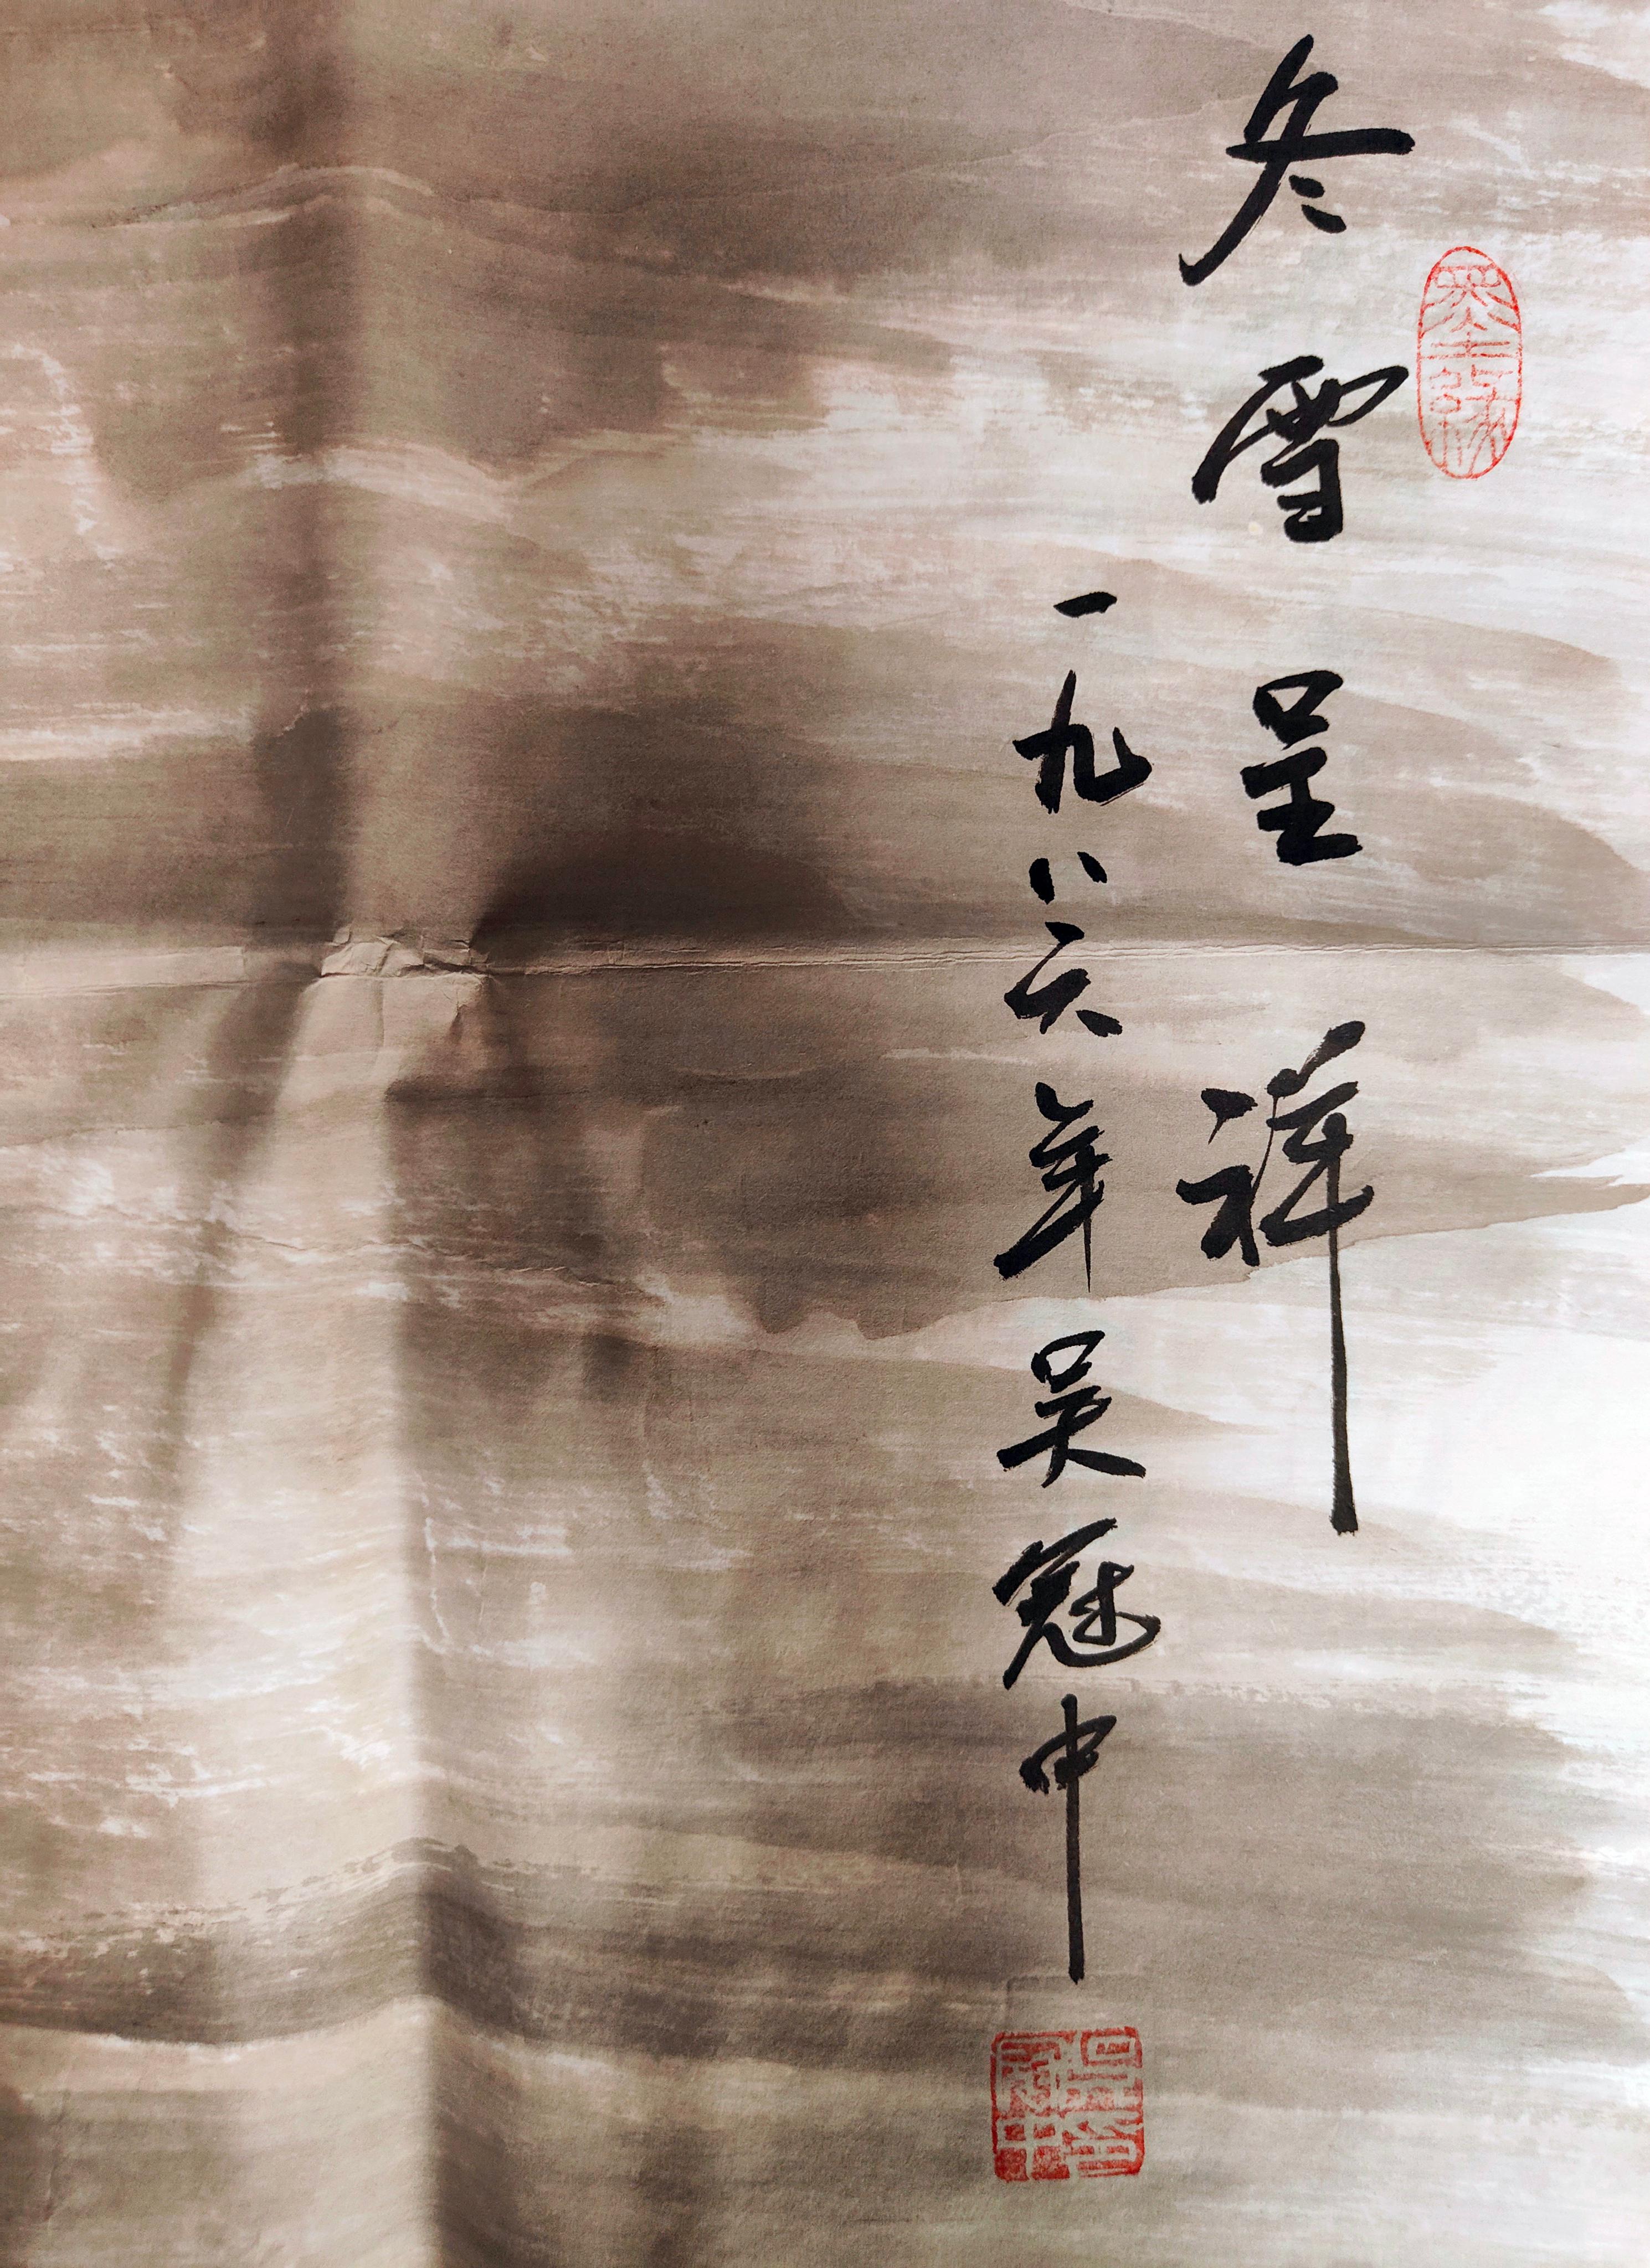 冬雪呈祥
一九八六年吴冠中